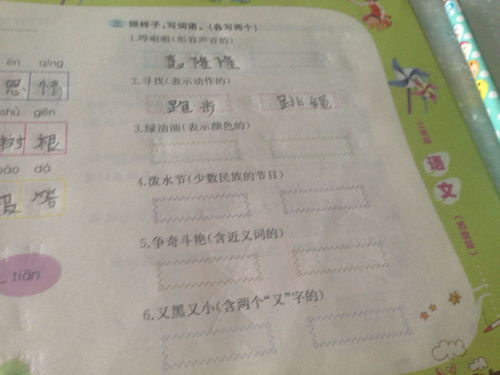 ēn qíng
恩 情
shù gēn
树 根
bào dá
报 答
tiān
三、照样子,写词语。(各写两个)
1.哗啦啦(形容声音的)
轰隆隆
2.寻找(表示动作的)
跑步 跳绳
3.绿油油(表示颜色的)
4.泼水节(少数民族的节日)
5.争奇斗艳(含近义词的)
6.又黑又小(含两个“又”字的)
语文